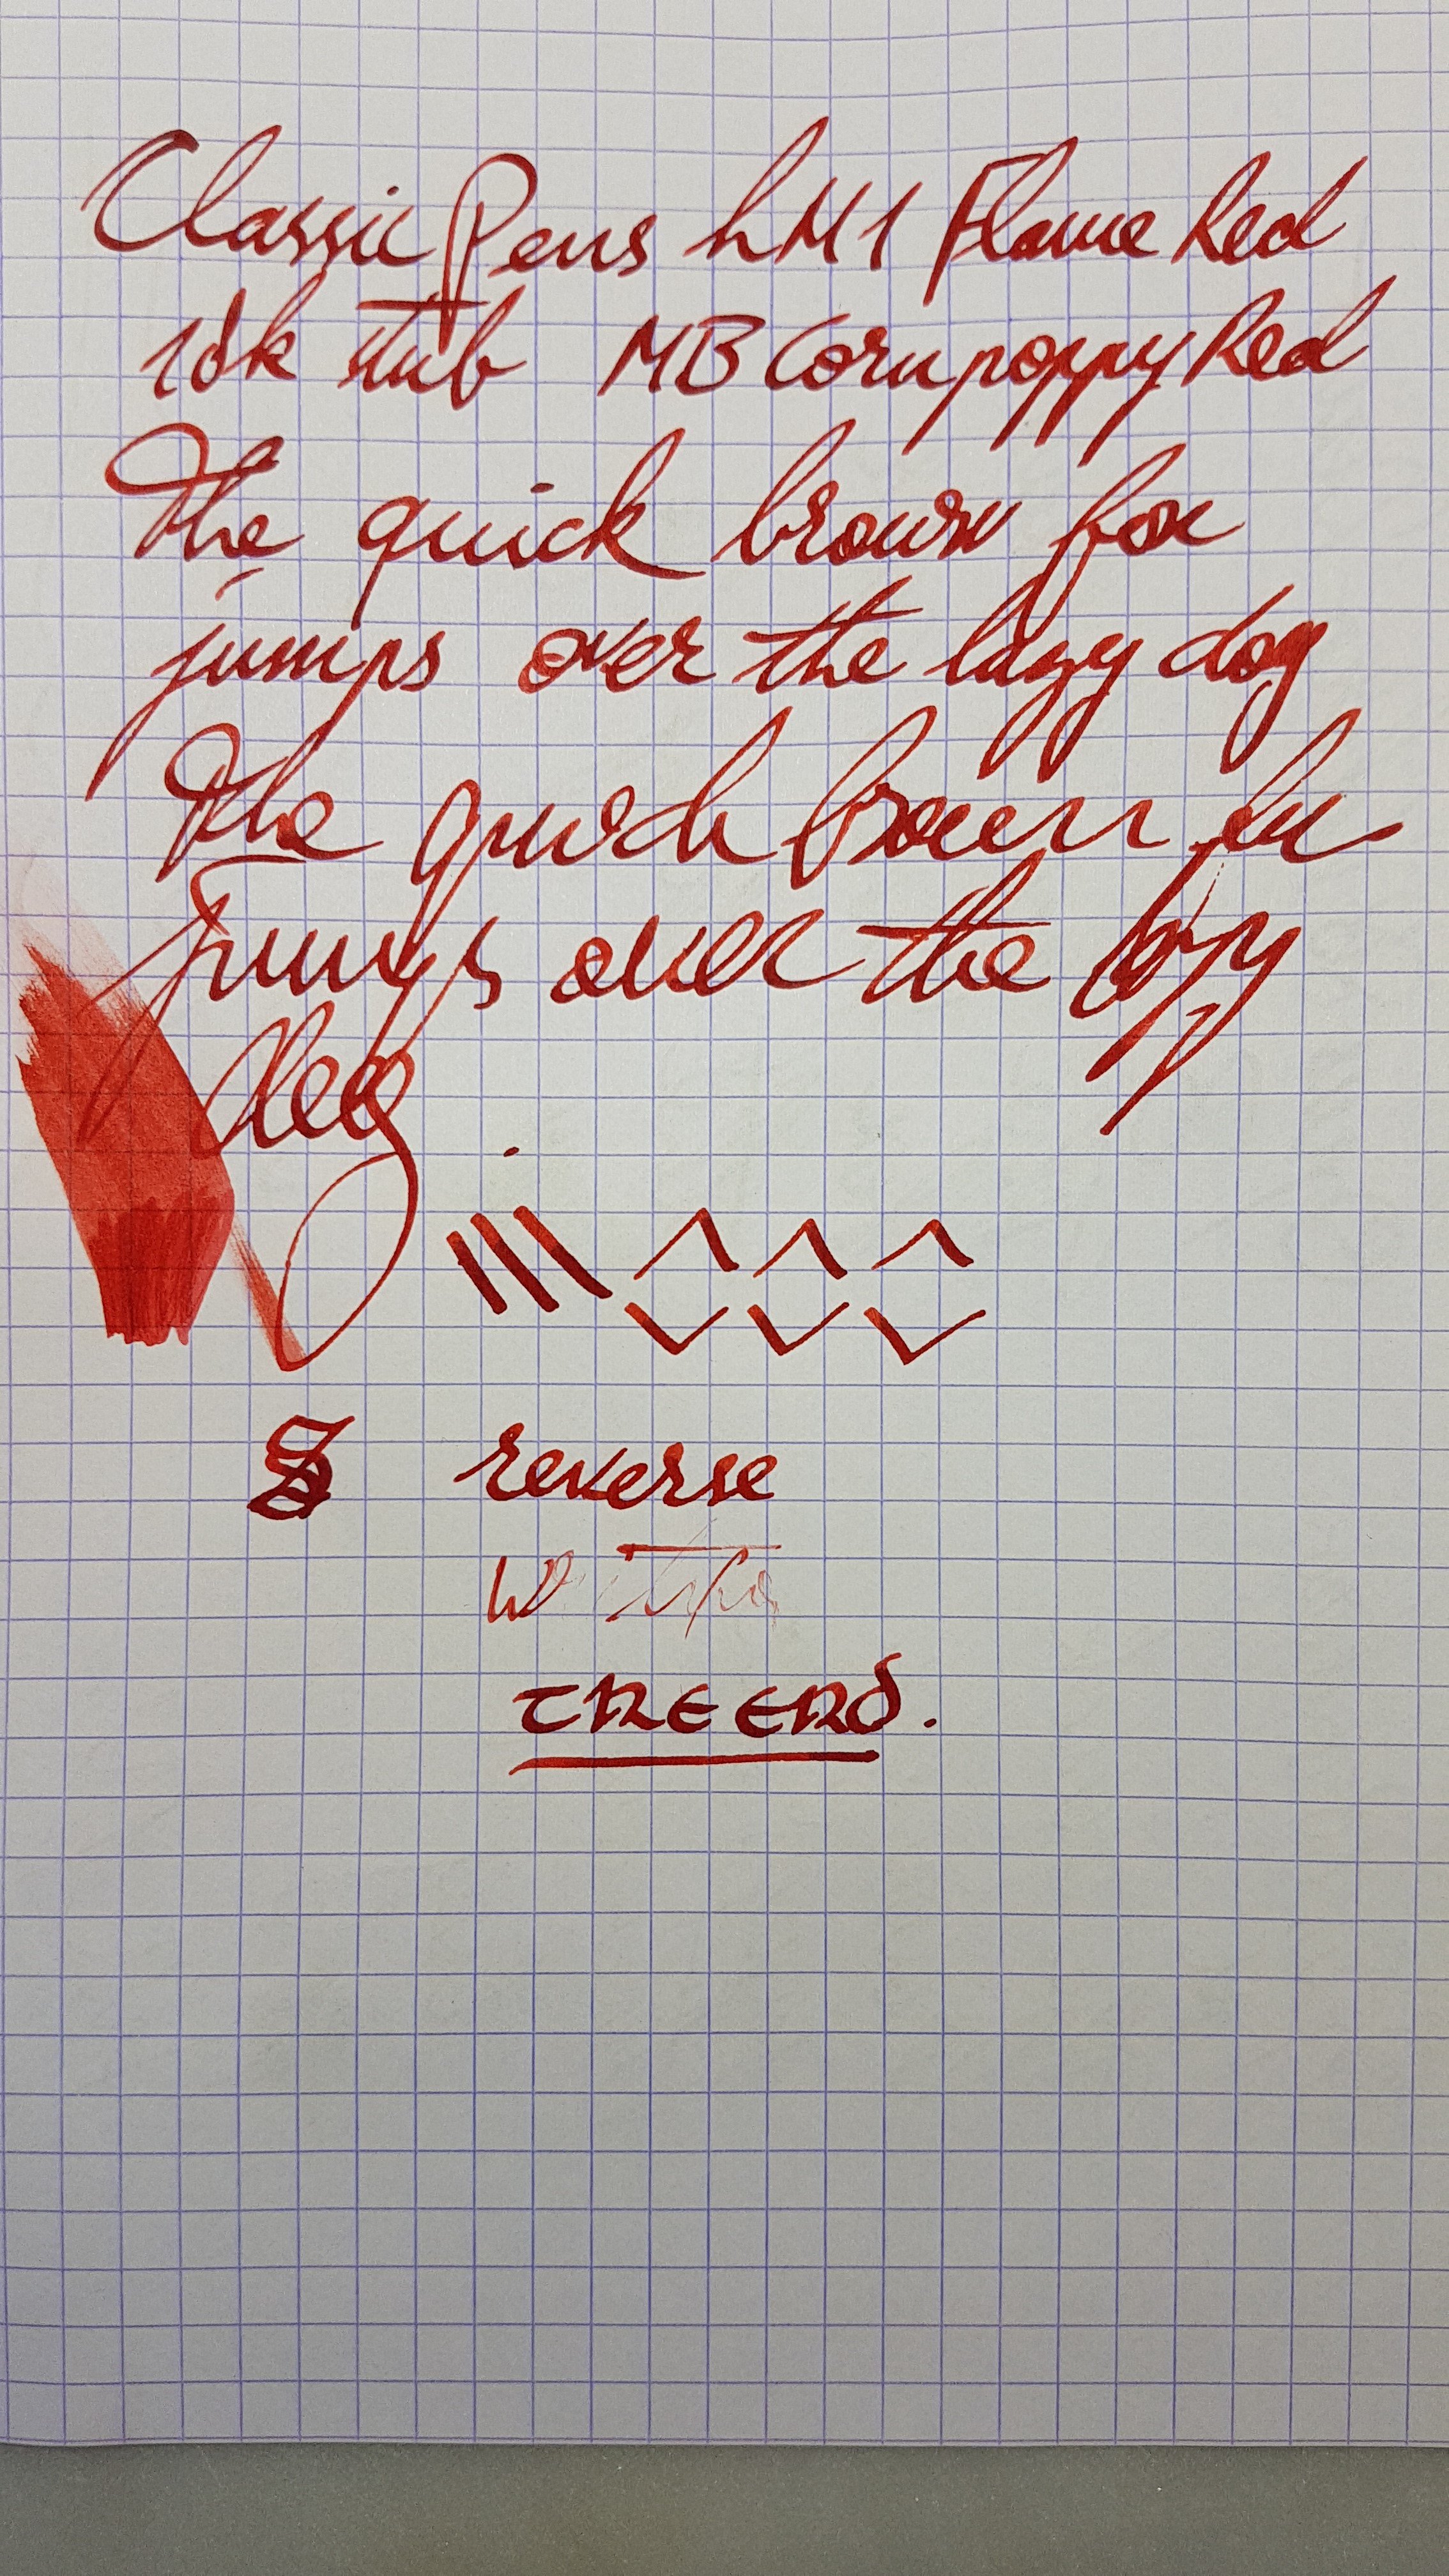 Classic Pens LM1 Flame Red
18k stub MB Corn poppy Red
The quick brown fox
jumps over the lazy dog
The quick brown fox
jumps over the lazy
dog
reverse
writing
THE END.